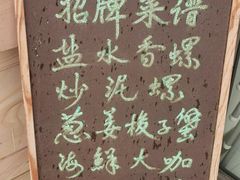 招牌菜谱
盐水香螺
炒泥螺
葱姜梭子蟹
海鲜大咖